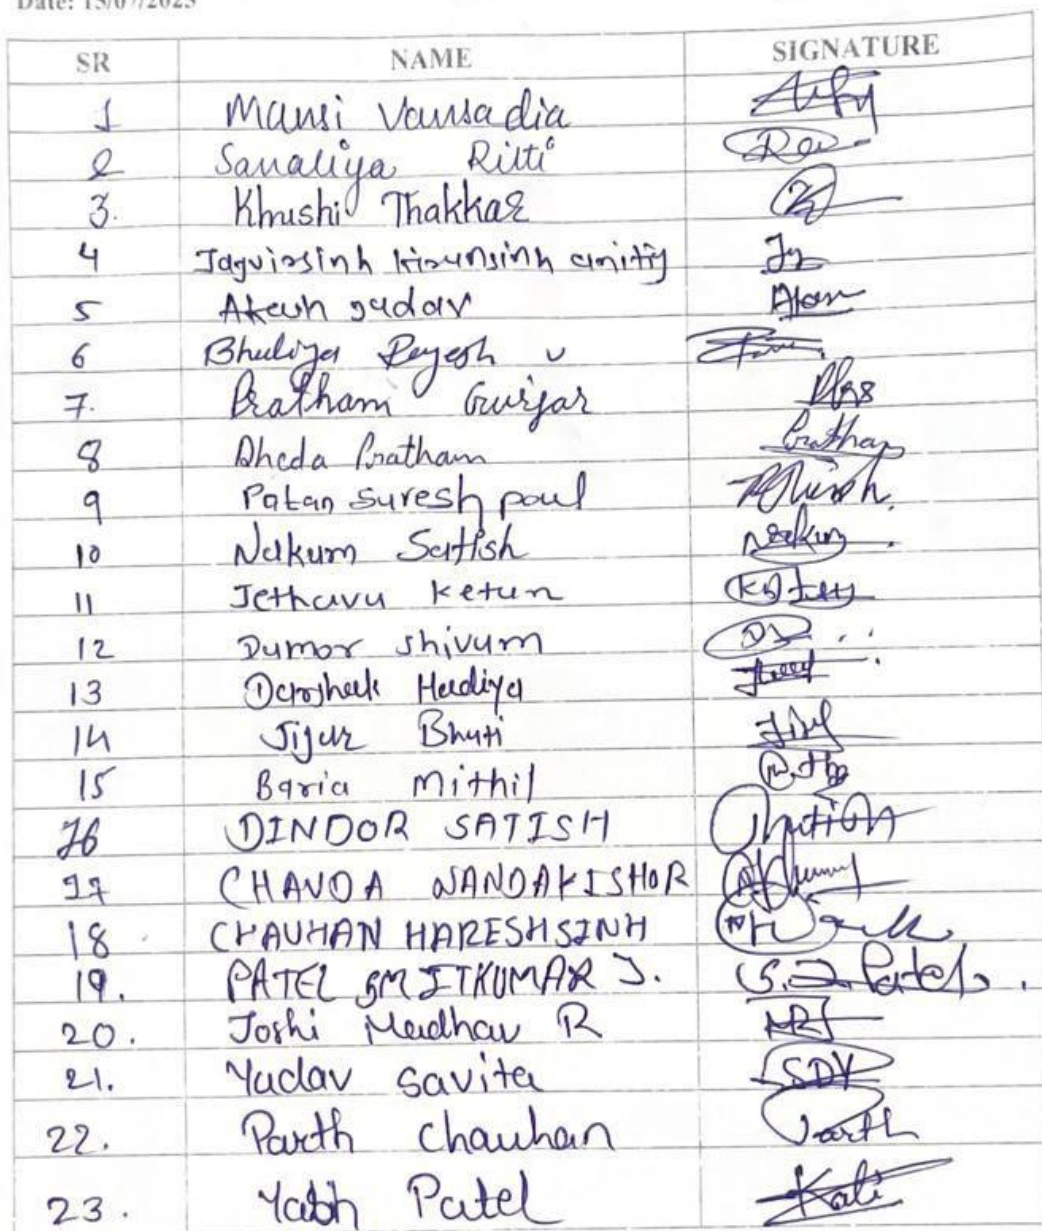 Date: 15/07/2025
SR NAME SIGNATURE
1 Mansi Vansadia
2 Sanaliya Ritti
3. Khushi Thakkar
4 Jagvirsinh kiransinh
5 Akash yadav Akas
6 Bhuliya v
7. Pratham Gurjar
8 Dheda Pratham Prathap
9 Patan Suresh paul
10 Nakum Satish Nakum
11 Jethava Ketan
12 Dumor Shivum DS
13 Hadiya
14 Jijar Bhuti
15 Baria Mithil
16 DINDOR SATISH
17 CHAVDA NANDAKISHOR
18 CHAUHAN HARESHSINH
19. PATEL SMITKUMAR J. S.J. Patel
20. Joshi Madhav R MRJ
21. Yadav Savita SDY
22. Parth Chauhan Parth
23. Yash Patel